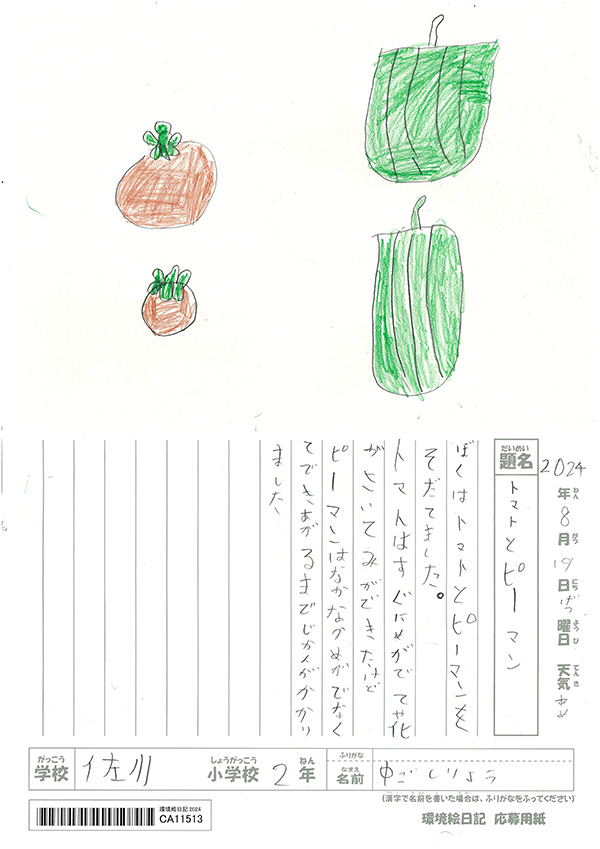 2024年8月19日げつ曜日 天気あめ
ねん がつ にち ようび てんき
だいめい
題名
トマトとピーマン
ぼくはトマトとピーマンを
そだてました。
トマトはすぐにめがでて花
がさいてみができたけど
ピーマンはなかなかめがでなく
てできあがるまでじかんがかかり
ました
がっこう
学校
佐川
しょうがっこう
小学校
2
ねん
年
ふりがな
なまえ
名前
(漢字で名前を書いた場合は、ふりがなをふってください)
環境絵日記2024
CA11513
環境絵日記 応募用紙